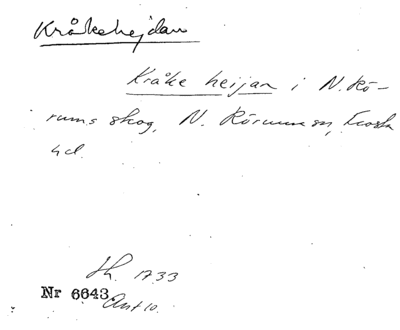 Kråkehejdan
Kråke heijan i N. Rö-
rums skog, N. Rörum sn, Frosta
hd.
Lh. 1733
Nr 6643. Ant 10.